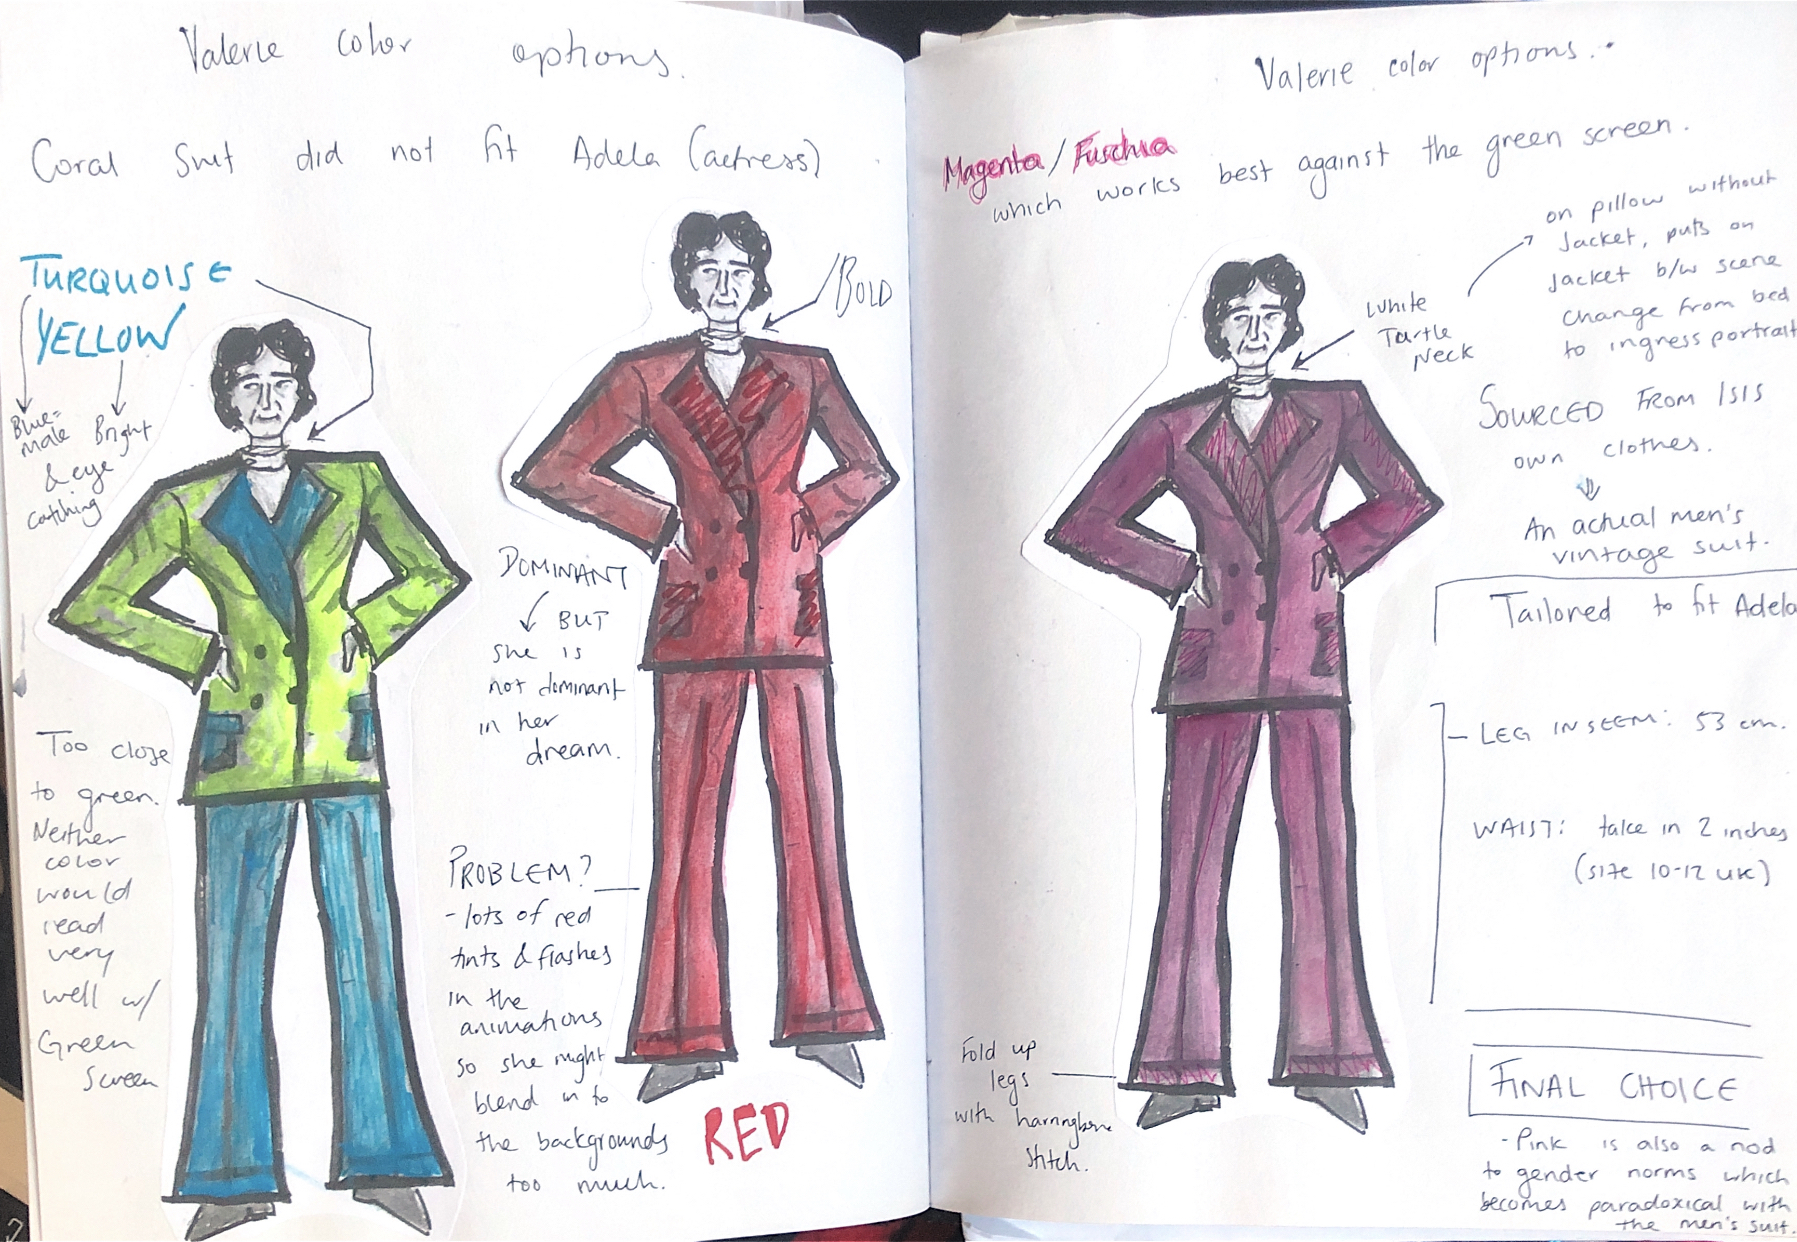 Valerie color options.
Coral Suit did not fit Adela (actress)
TURQUOISE
YELLOW
Blue=
male
Bright
& eye
catching
Too close
to green.
Neither
color
would
read
very
well w/
Green
Screen
BOLD
DOMINANT
BUT
she is
not dominant
in her
dream.
PROBLEM?
- lots of red
tints & flashes
in the
animations
so she might
blend in to
the backgrounds
too much.
RED
Valerie color options.
Magenta / Fuschia
which works best against the green screen.
White
Turtle
Neck
on pillow without
Jacket, puts on
Jacket b/w scene
change from bed
to ingress portrait
SOURCED FROM ISIS
own clothes.
An actual men's
vintage suit.
Tailored to fit Adela
- LEG INSEEM: 53 cm.
WAIST: take in 2 inches
(size 10-12 UK)
Fold up
legs
with harringbone
stitch.
FINAL CHOICE
- Pink is also a nod
to gender norms which
becomes paradoxical with
the men's suit.